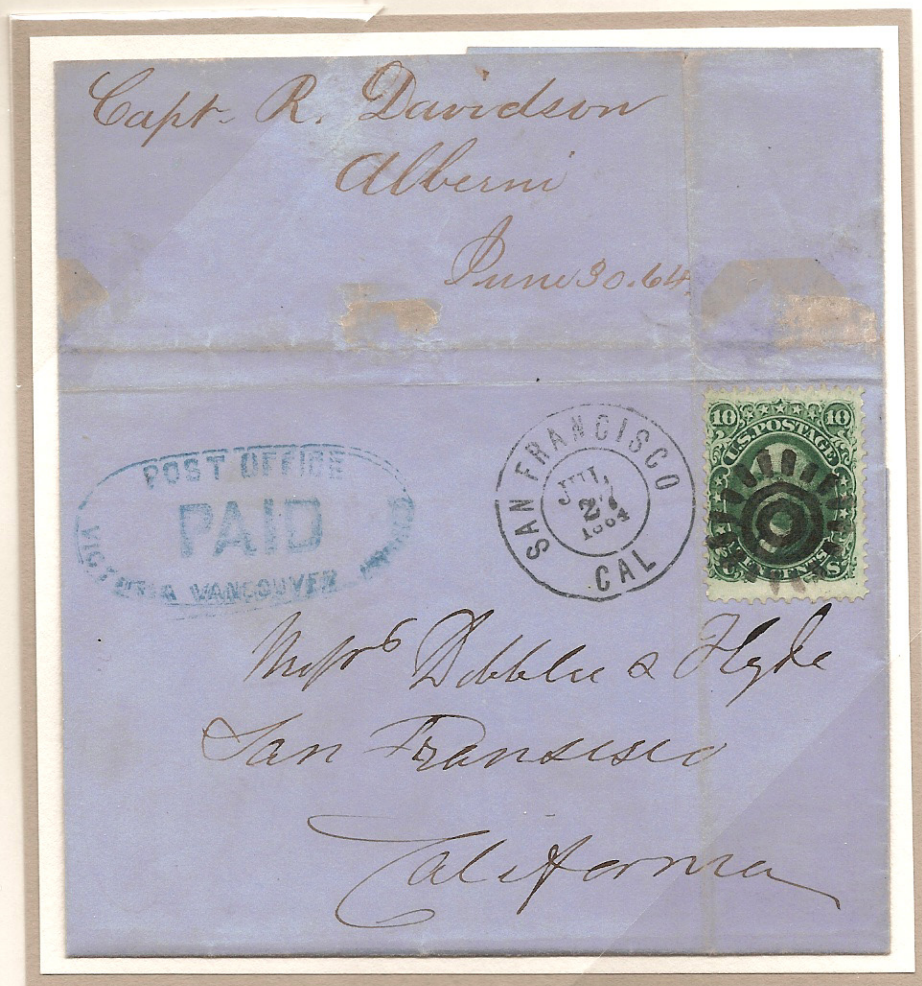 Capt. R. Davidson
Alberni
June 30. 64
10 10
U.S. POSTAGE
POST OFFICE
PAID
VICTORIA VANCOUVER ISLAND
SAN FRANCISCO
JUL
27
1864
CAL
TEN CENTS
U S
Messrs Dibblee & Hyde
San Francisco
California